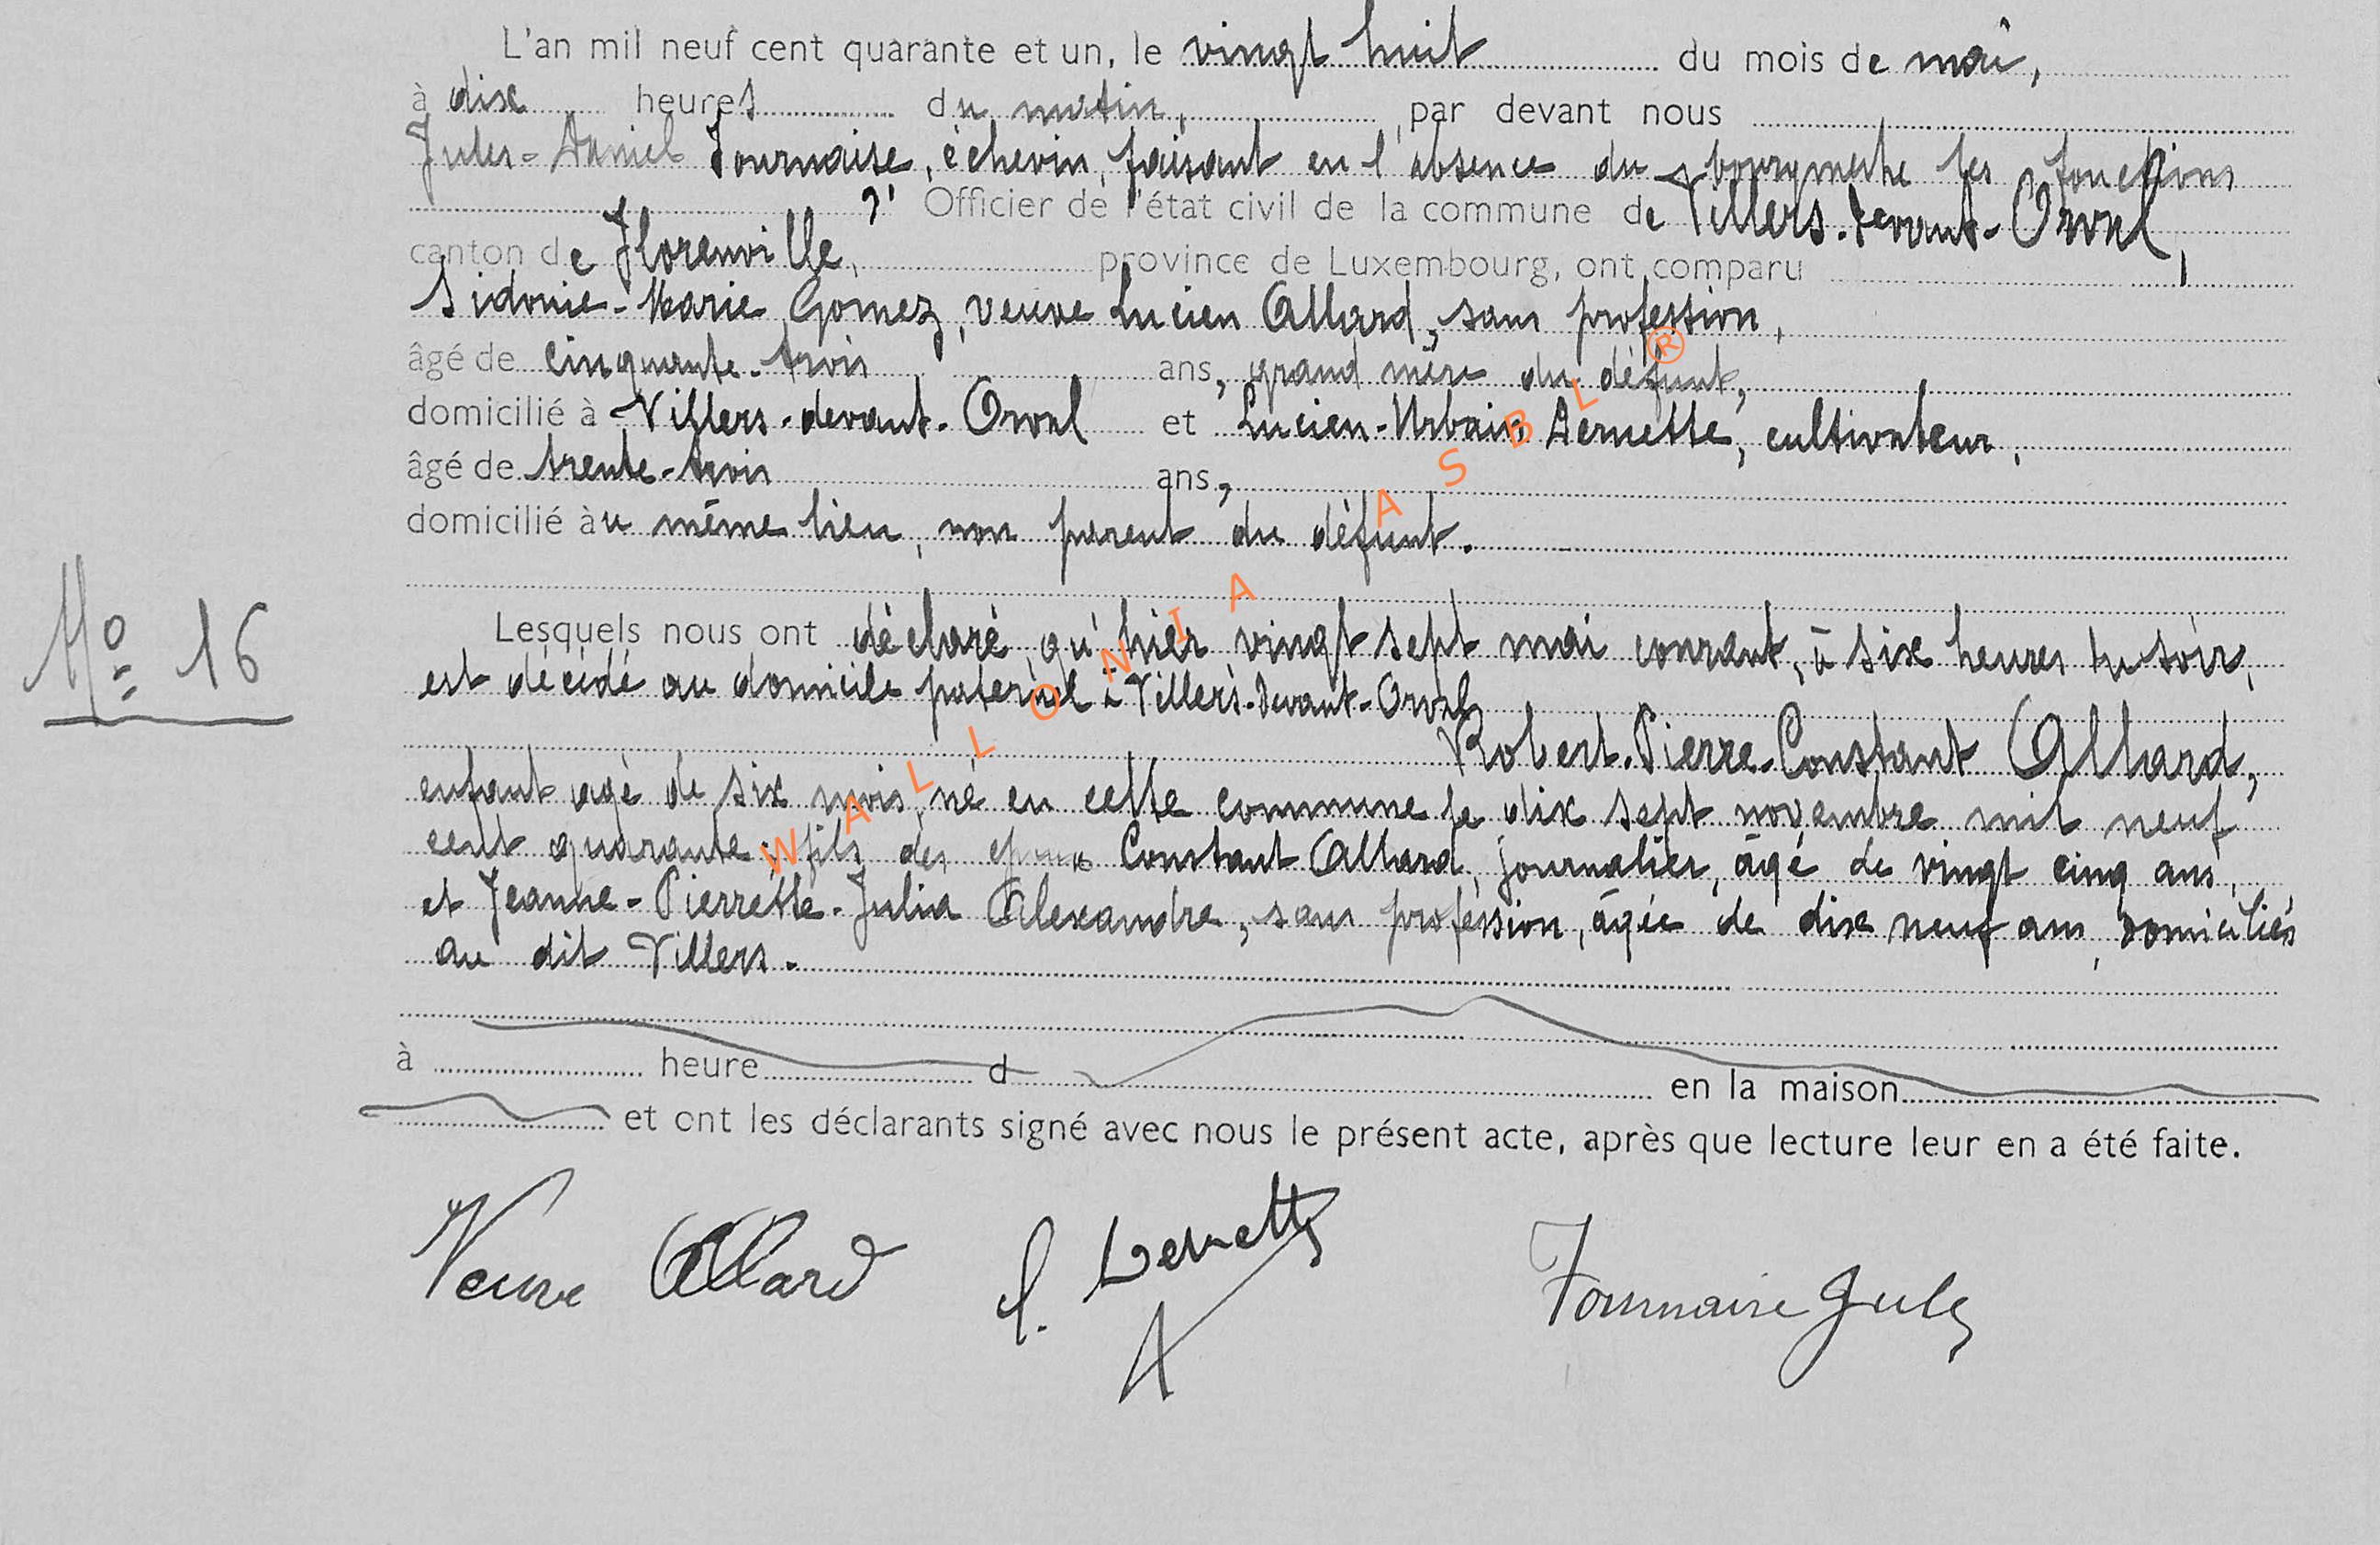 L'an mil neuf cent quarante et un, le vingt huit du mois de mai,
à dix heures du matin, par devant nous
Jules-Daniel Fournaise, échevin, faisant en l'absence du bourgmestre les fonctions
d' Officier de l'état civil de la commune de Villers-devant-Orval,
canton de Florenville, province de Luxembourg, ont comparu
Sidonie-Marie Gomez, veuve Lucien Allard, sans profession,
âgé de cinquante-trois ans, grand mère du défunt,
domicilié à Villers-devant-Orval et Lucien-Urbain Dernette, cultivateur,
âgé de trente-trois ans,
domicilié au même lieu, non parent du défunt.
Nº 16
Lesquels nous ont déclaré qu'hier vingt sept mai courant, à six heures du soir,
est décédé au domicile paternel à Villers-devant-Orval
Robert-Pierre-Constant Allard,
enfant agé de six mois, né en cette commune le dix sept novembre mil neuf
cent quarante, fils des époux Constant Allard, journalier, âgé de vingt cinq ans,
et Jeanne-Pierrette-Julia Alexandre, sans profession, âgée de dix neuf ans, domiciliés
au dit Villers.
à heure d en la maison
et ont les déclarants signé avec nous le présent acte, après que lecture leur en a été faite.
Veuve Allard L. Dernette Fournaise Jules
WALLONIA ASBL ®